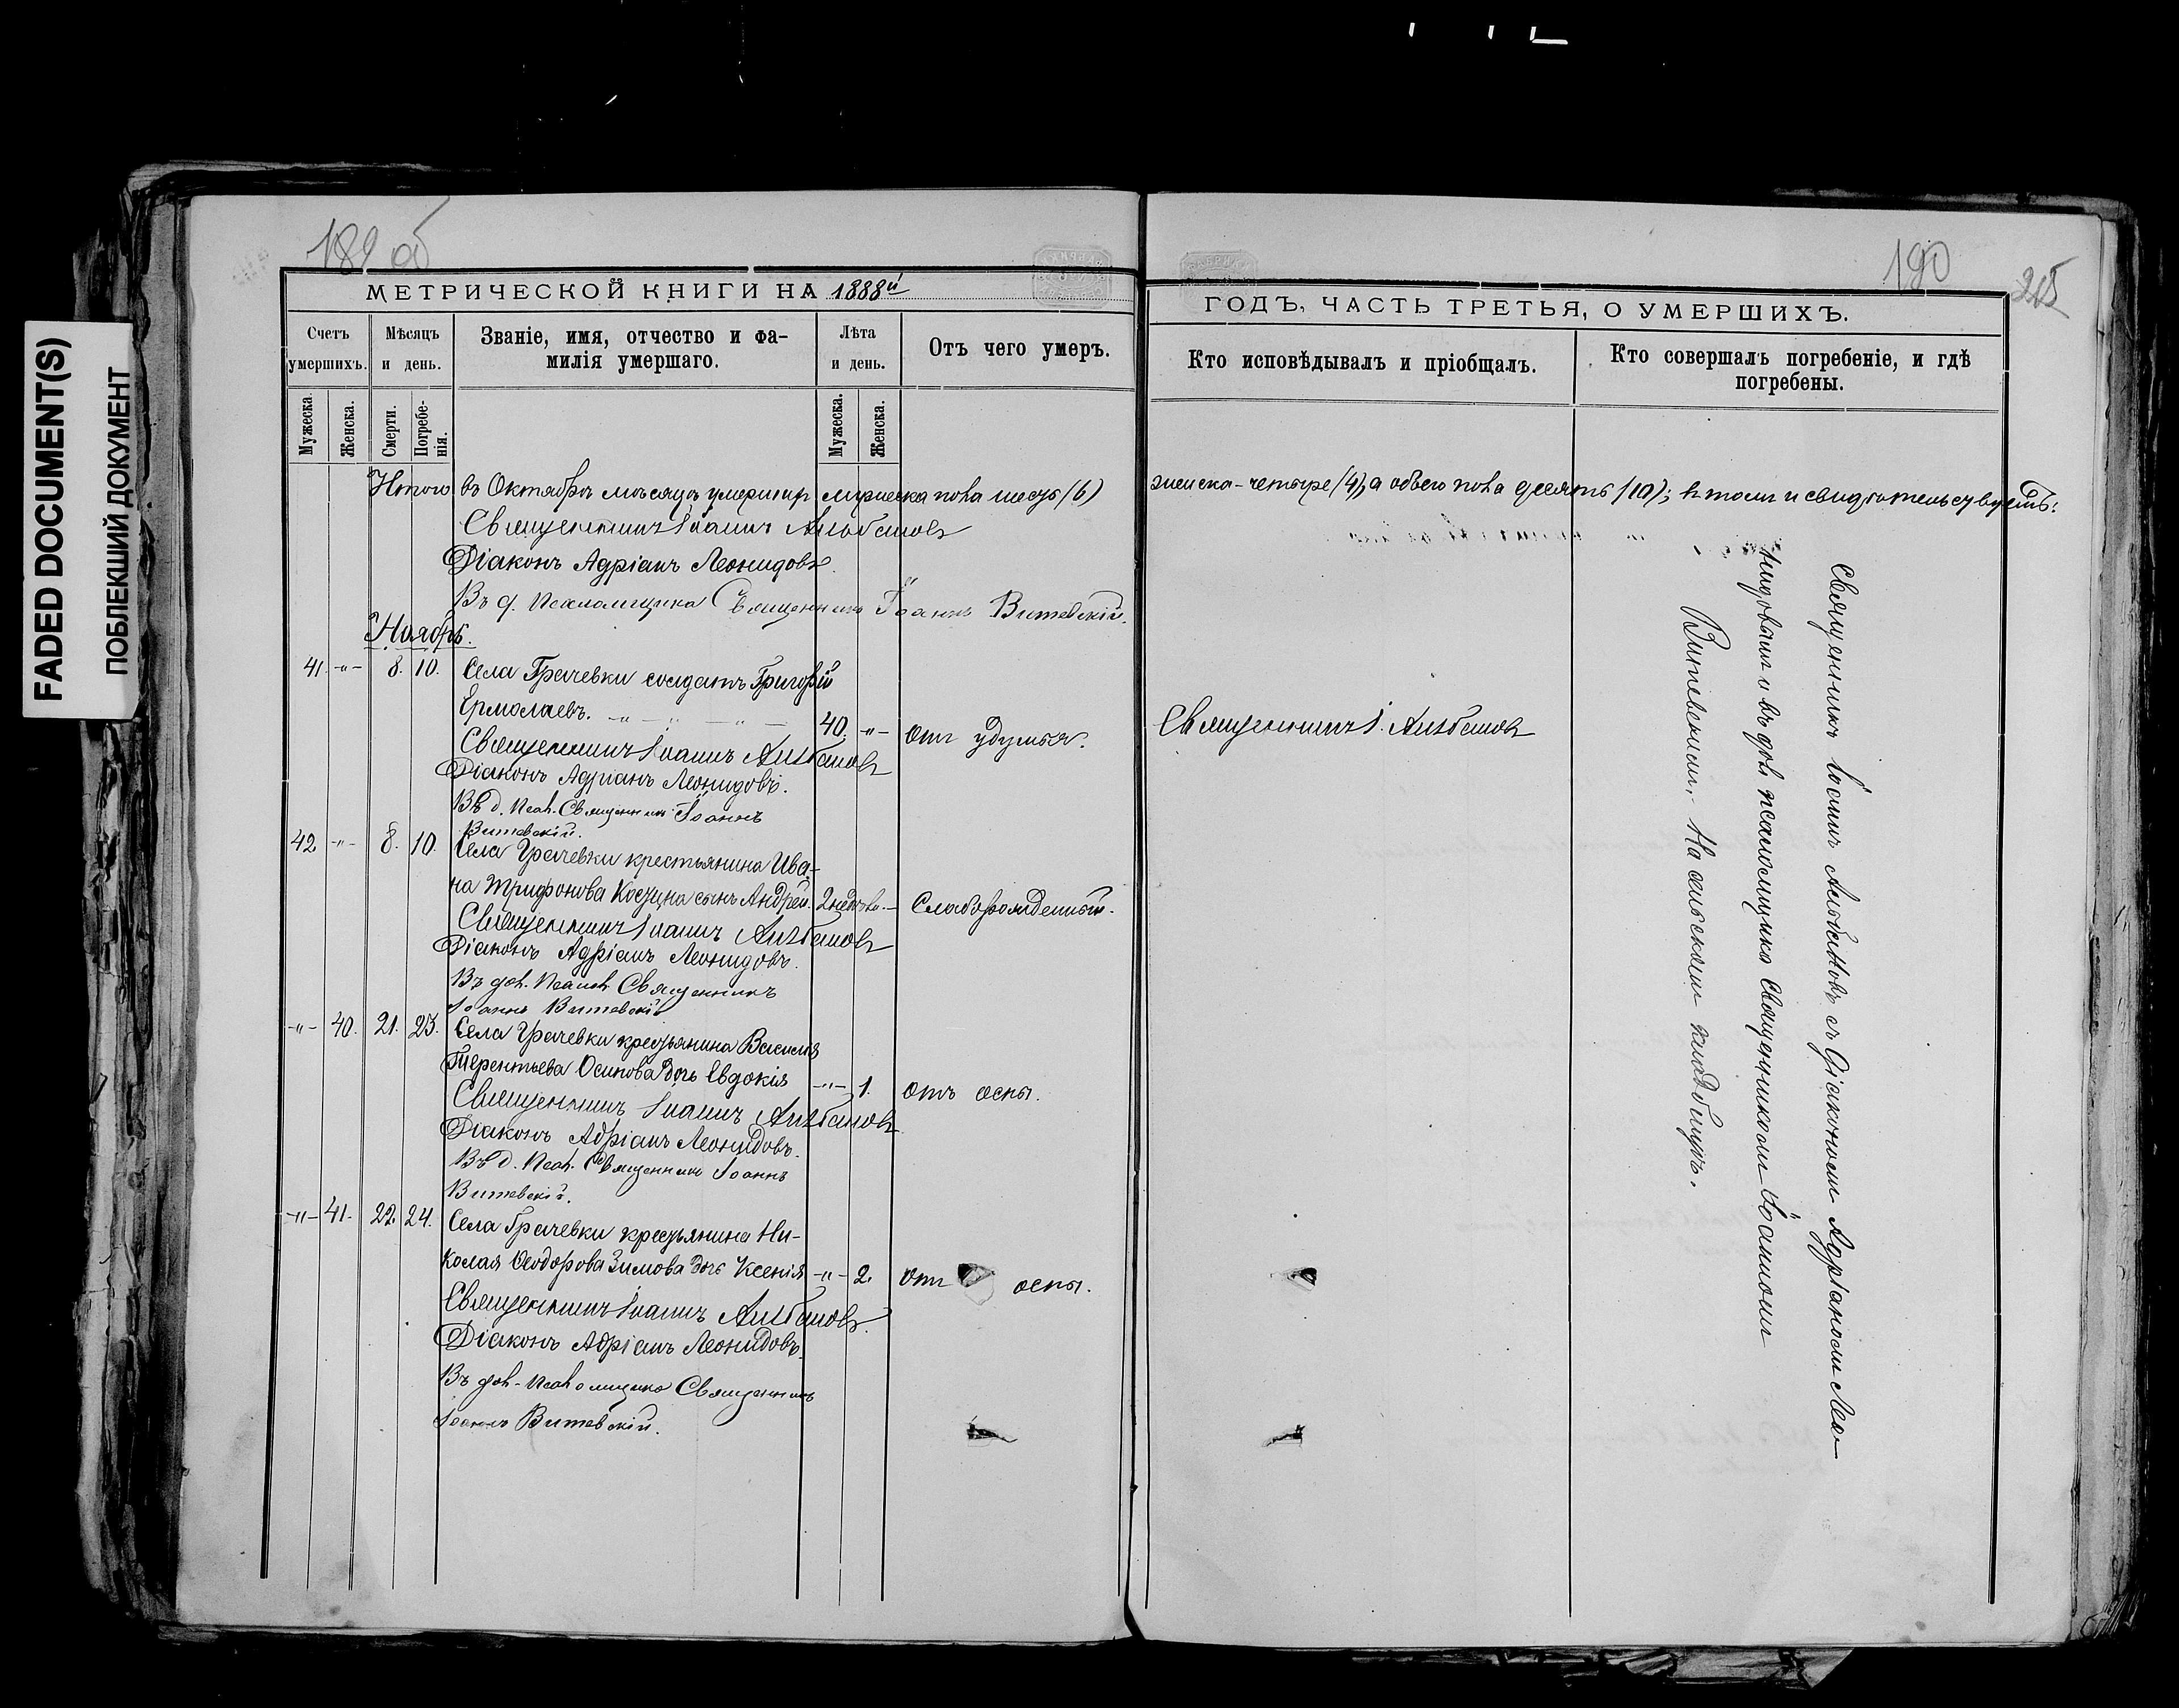 FADED DOCUMENT(S)
ПОБЛЕКШИЙ ДОКУМЕНТ
189 об
МЕТРИЧЕСКОЙ КНИГИ НА 1888й
Счетъ умершихъ.
Мѣсяцъ и день.
Званіе, имя, отчество и фамилія умершаго.
Лѣта и день.
Отъ чего умеръ.
Мужеска.
Женска.
Смерти.
Погребенія.
Мужеска.
Женска.
Итого въ Октябрѣ мѣсяцѣ умершихъ мужеска пола шесть (6)
Священникъ Іоаннъ Альбановъ
Діаконъ Адріанъ Леонидовъ
Въ д. псаломщика Священникъ Іоаннъ Витевскій.
Ноябрь.
41. -"- 8. 10. Села Грачевки солдатъ Григорій
Ермолаевъ. -"- -"- -"- 40. -"- отъ удушья.
Священникъ Іоаннъ Альбановъ
Діаконъ Адріанъ Леонидовъ.
Въ д. псал. Священникъ Іоаннъ
Витевскій.
42 -"- 8. 10. Села Грачевки крестьянина Ива-
на Трифонова Косцина сынъ Андрей. 2 недѣль. - Слаборожденный.
Священникъ Іоаннъ Альбановъ
Діаконъ Адріанъ Леонидовъ.
Въ дол. псалом. Священникъ
Іоаннъ Витевскій
-"- 40. 21. 23. Села Грачевки крестьянина Василія
Терентьева Осипова дочь Евдокія -"- 1. отъ оспы.
Священникъ Іоаннъ Альбановъ
Діаконъ Адріанъ Леонидовъ.
Въ д. псал. Священникъ Іоаннъ
Витевскій.
-"- 41. 22. 24. Села Грачевки крестьянина Ни-
колая Ѳеодорова Зимова дочь Ксенія -"- 2. отъ оспы.
Священникъ Іоаннъ Альбановъ.
Діаконъ Адріанъ Леонидовъ.
Въ дол. псаломщика Священникъ
Іоаннъ Витевскій.
190
215
ГОДЪ, ЧАСТЬ ТРЕТЬЯ, О УМЕРШИХЪ.
Кто исповѣдывалъ и пріобщалъ.
Кто совершалъ погребеніе, и гдѣ погребены.
женска - четыре (4), а обоего пола десять (10); въ томъ и свидѣтельствуемъ:
Священникъ І. Альбановъ
Священникъ Іоаннъ Альбановъ съ Діакономъ Адріаномъ Лео-
нидовымъ и въ дол. псаломщика Священникомъ Іоанномъ
Витевскимъ. - На сельскомъ кладбищѣ.